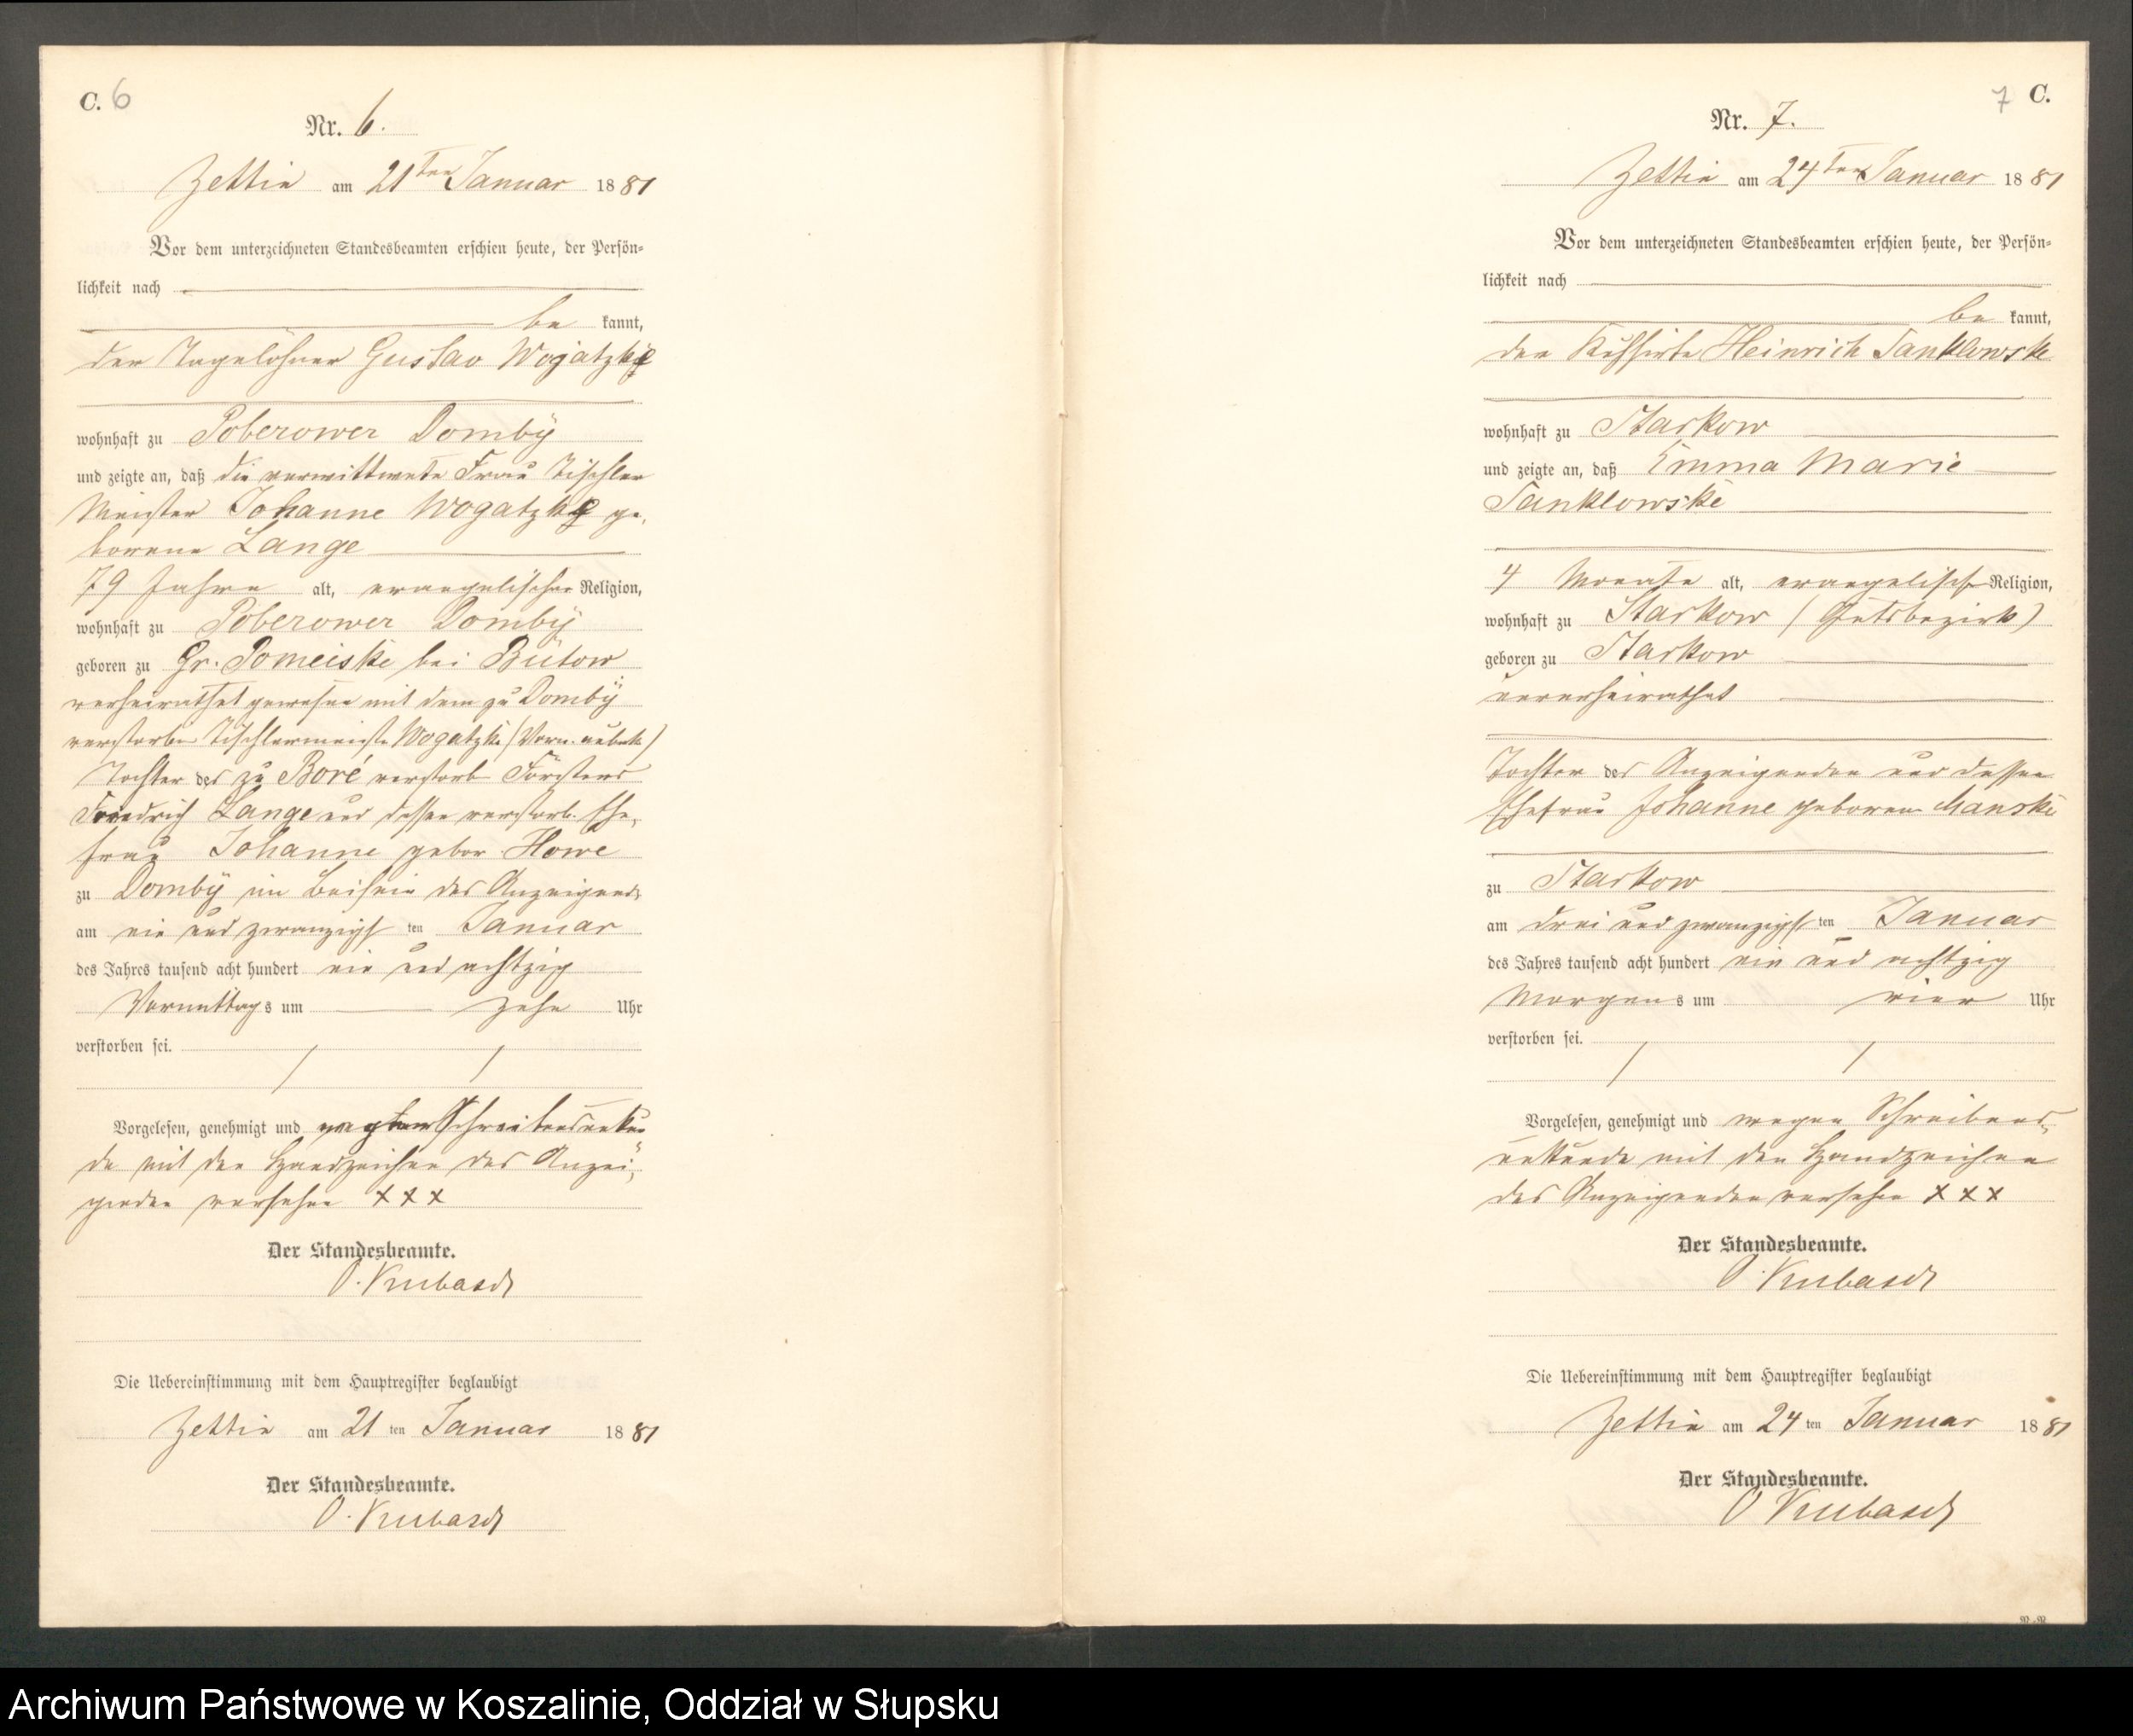 C. 6
Nr. 6.
Zettin am 21ten Januar 1881
Vor dem unterzeichneten Standesbeamten erschien heute, der Persön-
lichkeit nach
be kannt,
der Tagelöhner Gustav Wogatzke
wohnhaft zu Poberower Dombÿ
und zeigte an, daß die verwittwete Frau Tischler
Meister Johanne Wogatzke ge-
borene Lange
79 Jahre alt, evangelischer Religion,
wohnhaft zu Poberower Dombÿ
geboren zu Gr. Pomeiske bei Bütow
verheirathet gewesen mit dem zu Dombÿ
verstorben Tischlermeister Wogatzke (Vorn. unbek)
Tochter des zu Boré verstorb Försters
Friedrich Lange und dessen verstorb. Ehe-
frau Johanne gebor. Howe
zu Dombÿ im Beisein des Anzeigend.
am ein und zwanzigsten Januar
des Jahres tausend acht hundert ein und achtzig
Vormittags um zehn Uhr
verstorben sei.
Vorgelesen, genehmigt und wegen Schreibensunkun
de mit den Handzeichen des Anzei-
genden versehen XXX
Der Standesbeamte.
O. Kubasch
Die Uebereinstimmung mit dem Hauptregister beglaubigt
Zettin am 21 ten Januar 1881
Der Standesbeamte.
O. Kubasch
7 C.
Nr. 7.
Zettin am 24ten Januar 1881
Vor dem unterzeichneten Standesbeamten erschien heute, der Persön-
lichkeit nach
be kannt,
der Kuhhirte Heinrich Janklowske
wohnhaft zu Starkow
und zeigte an, daß Emma Marie
Janklowske
4 Monate alt, evangelisch Religion,
wohnhaft zu Starkow (Gutsbezirk)
geboren zu Starkow
unverheirathet
Tochter des Anzeigenden und dessen
Ehefrau Johanne geboren Manske
zu Starkow
am drei und zwanzigsten Januar
des Jahres tausend acht hundert ein und achtzig
Morgens um vier Uhr
verstorben sei.
Vorgelesen, genehmigt und wegen Schreibens-
unkunde mit den Handzeichen
des Anzeigenden versehen XXX
Der Standesbeamte.
O. Kubasch
Die Uebereinstimmung mit dem Hauptregister beglaubigt
Zettin am 24 ten Januar 1881
Der Standesbeamte.
O Kubasch
Archiwum Państwowe w Koszalinie, Oddział w Słupsku